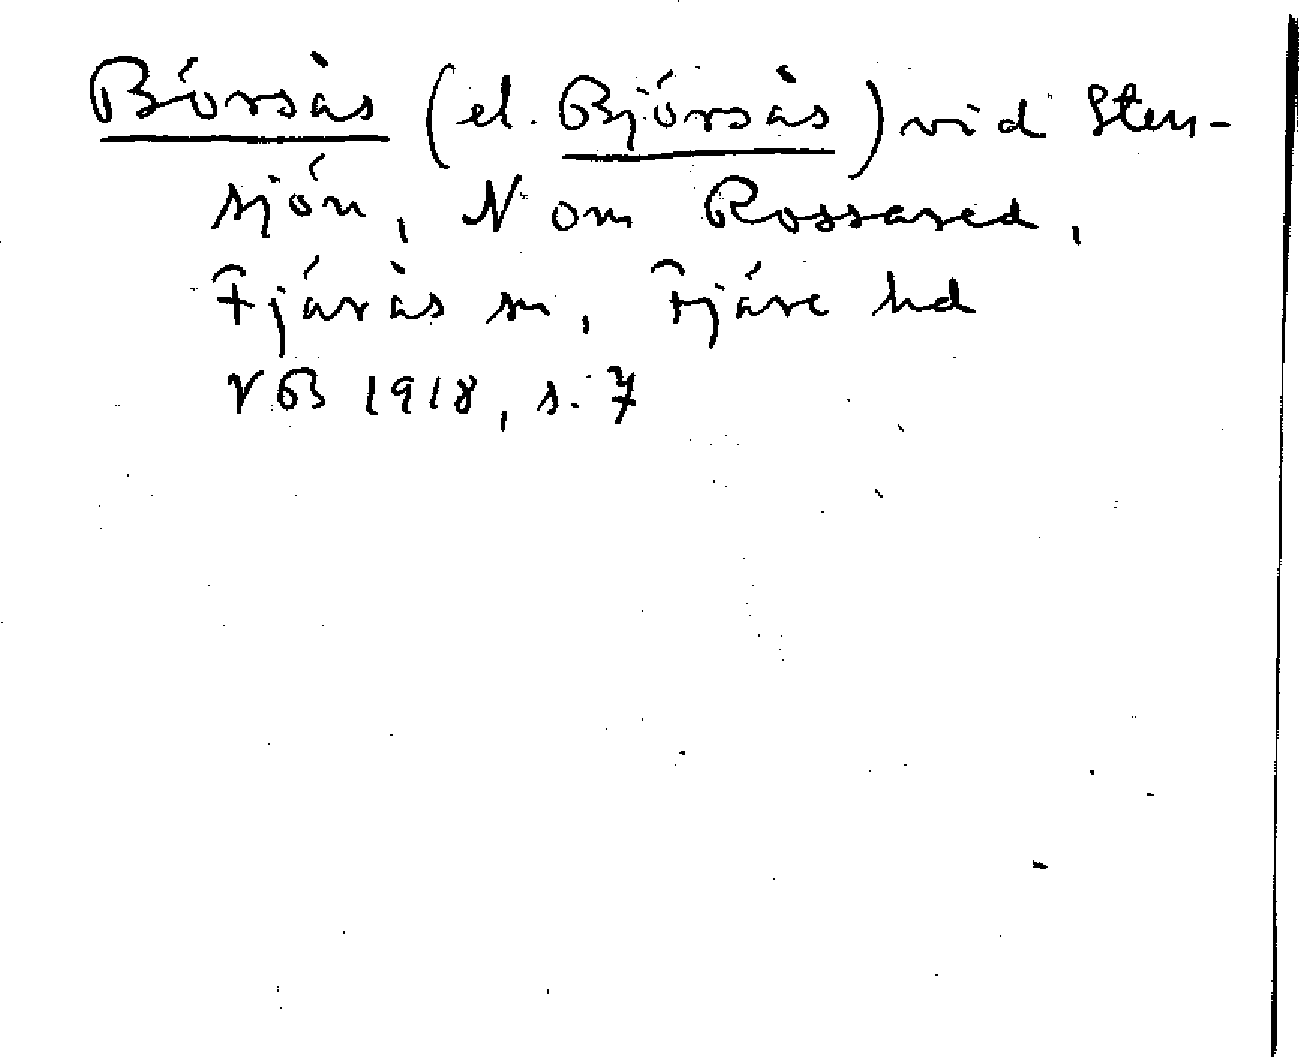 Börsås (el. Björsås) vid Sten-
sjön, N om Rossared,
Fjärås sn, Fjäre hd
VB 1918, s. 7